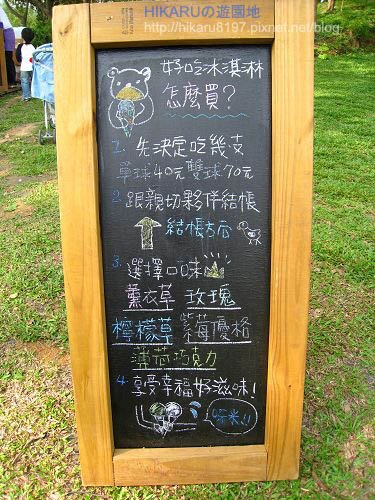 HIKARUの遊園地
http://hikaru8197.pixnet.net/blog
好吃冰淇淋
怎麼買?
1. 先決定吃幾支
單球40元 雙球70元
2. 跟親切夥伴結帳
結帳
3. 選擇口味
薰衣草 玫瑰
檸檬草 紫莓優格
薄荷巧克力
4. 享受幸福好滋味!